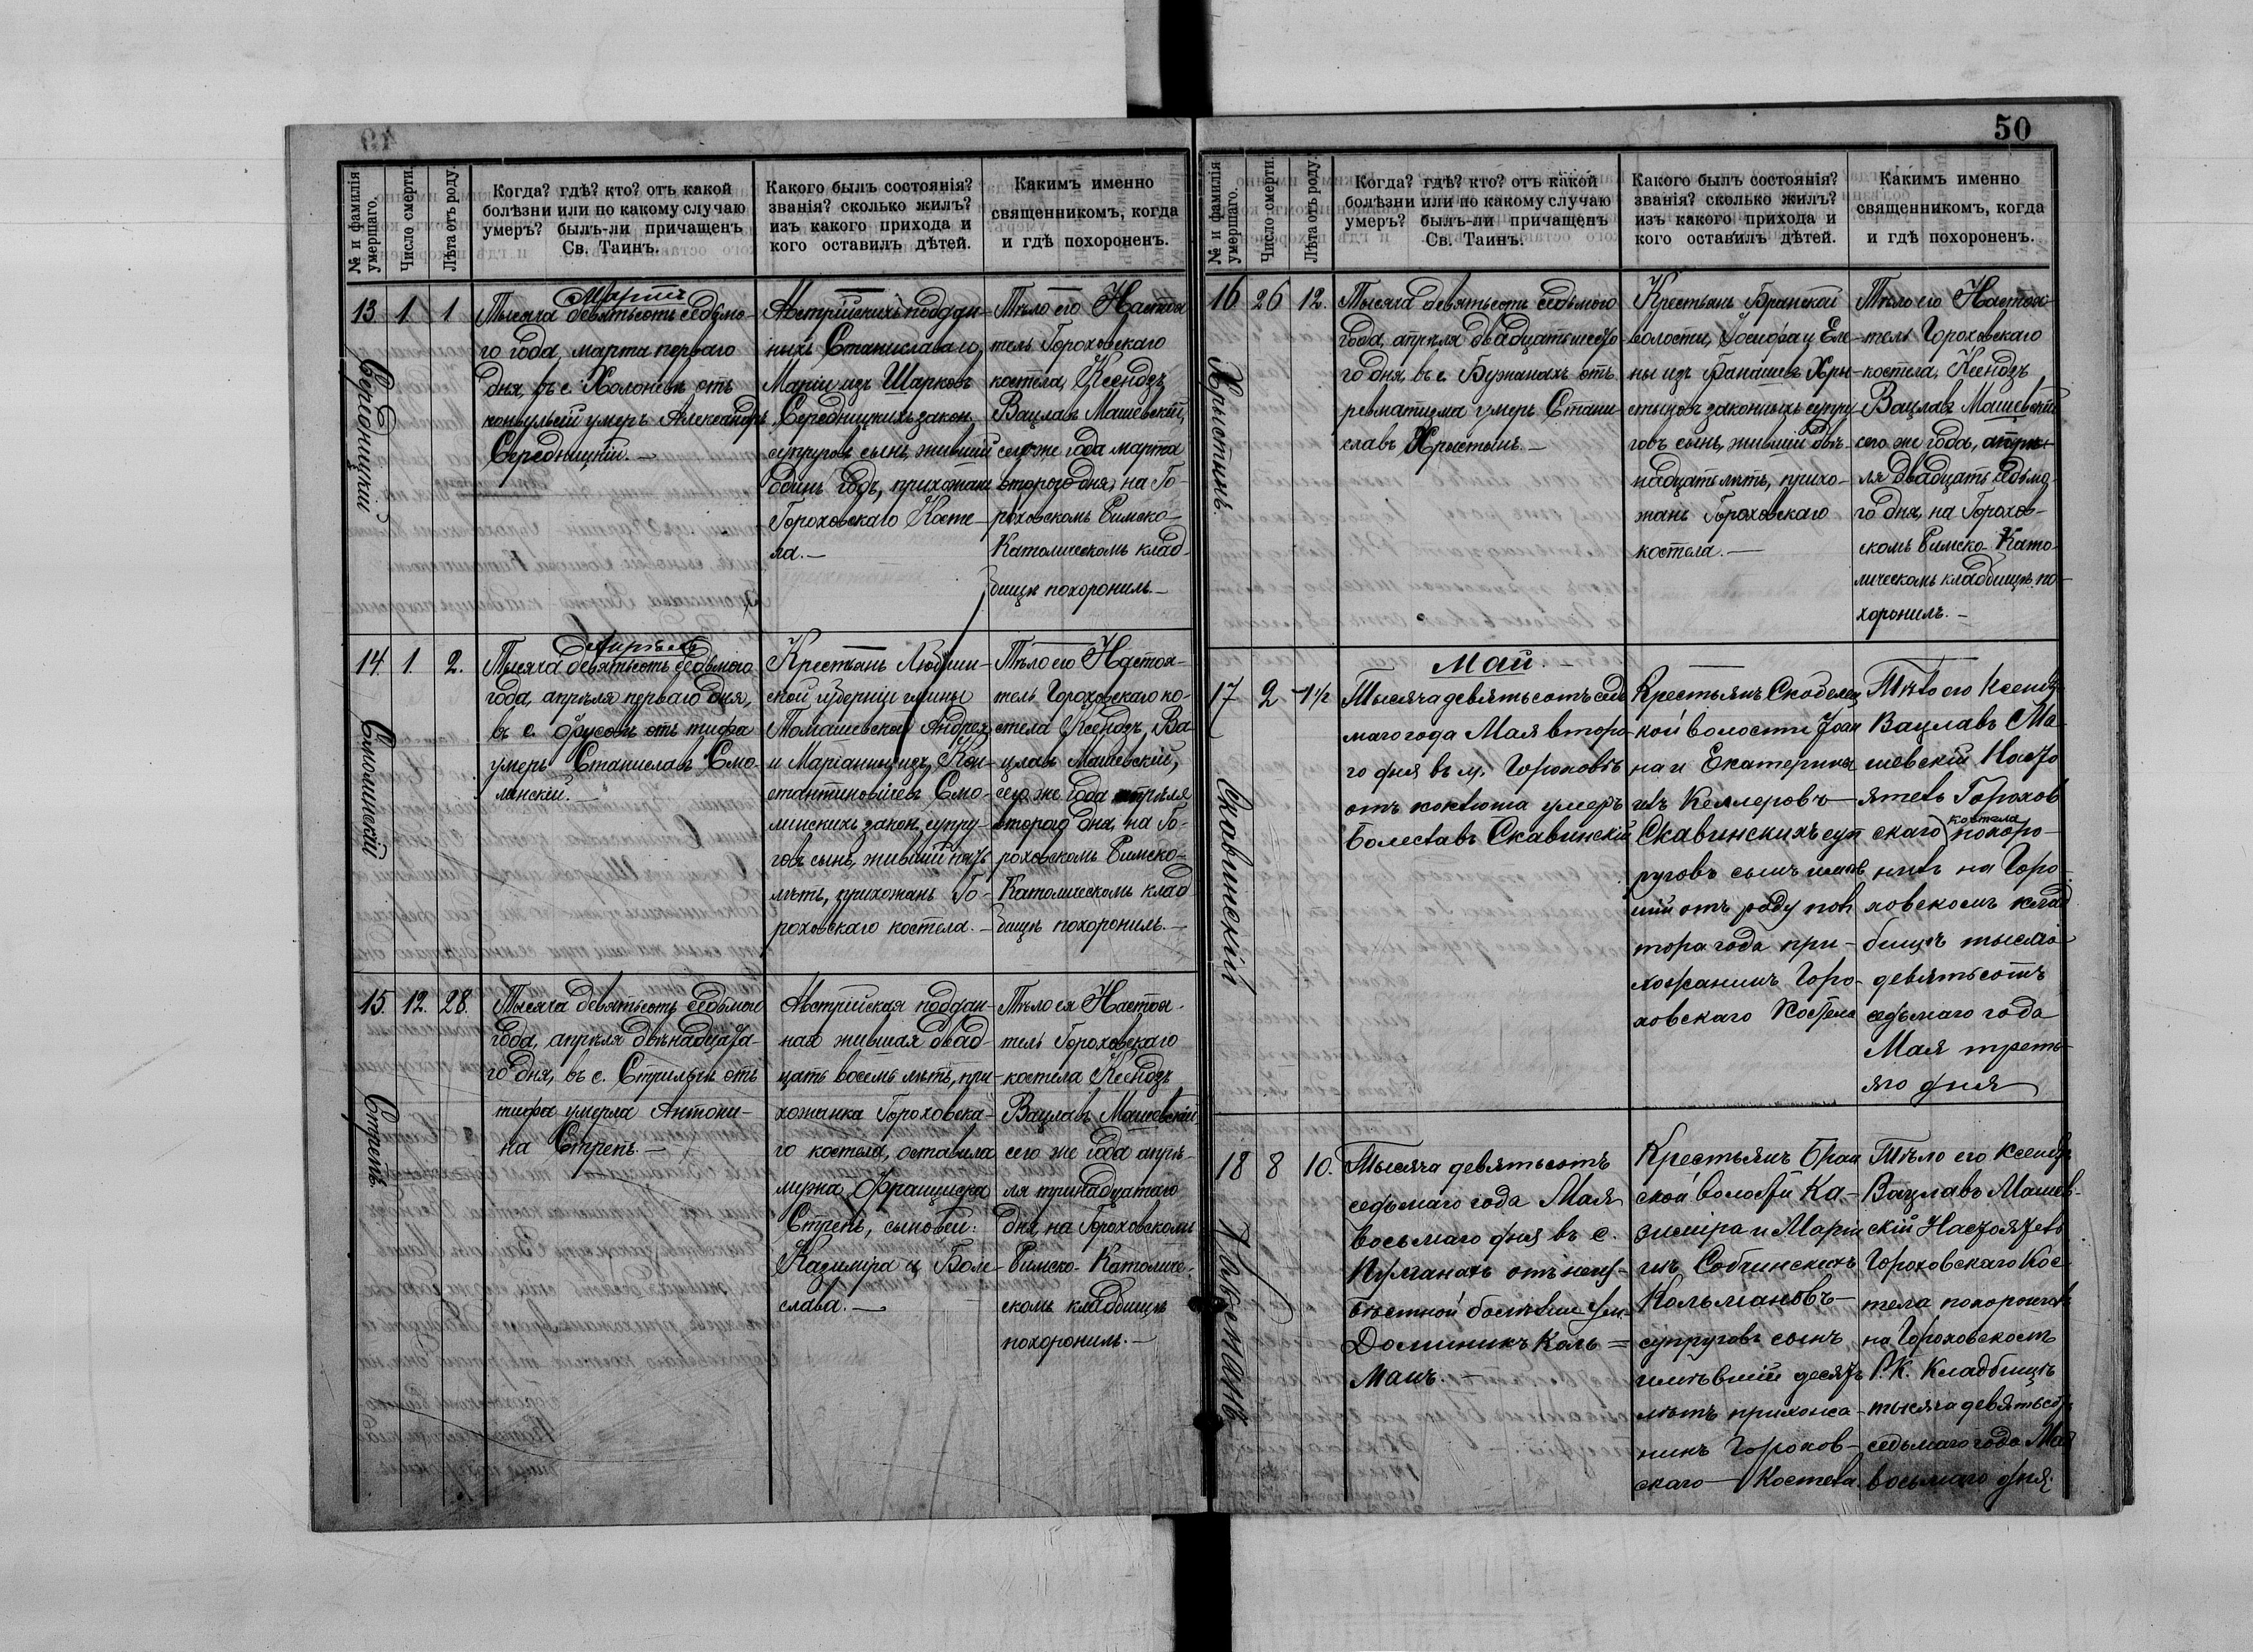 50
№ и фамилія умершаго.
Число смерти.
Лѣта отъ роду.
Когда? гдѣ? кто? отъ какой
болѣзни или по какому случаю
умеръ? былъ-ли причащенъ
Св. Таинъ.
Какого былъ состоянія?
званія? сколько жилъ?
изъ какого прихода и
кого оставилъ дѣтей.
Какимъ именно
священникомъ, когда
и гдѣ похороненъ.
13. 1 1
Середницкій
Мартъ
Тысяча девятьсотъ седьмо-
го года, марта перваго
дня, въ с. Холоневѣ отъ
конвульсій умеръ Александръ
Середницкій.—
Австрійскихъ поддан-
ныхъ Станислава и
Маріи изъ Шарковъ
Середницкихъ закон.
супруговъ сынъ, жившій
одинъ годъ, прихожанъ
Гороховскаго Косте-
ла.—
Тѣло его Настоя
тель Гороховскаго
костела, Ксендзъ
Вацлавъ Машевскій,
сего же года марта
второго дня, на Го-
роховскомъ Римско-
Католическомъ клад-
бищѣ похоронилъ.—
14. 1. 2.
Смолинскій
Апрѣль
Тысяча девятьсотъ седьмого
года, апрѣля перваго дня,
въ с. отъ тифа
умеръ Станиславъ Смо-
линскій.—
Крестьянъ Люблин-
ской губерніи гмины
Томашевской Андрея
и Маріанны изъ Кон-
стантиновичей Смо-
линскихъ закон. супру-
говъ сынъ, жившій
лѣтъ, прихожанъ Го-
роховскаго костела.—
Тѣло его Настоя-
тель Гороховскаго ко-
стела Ксендзъ, Ва-
цлавъ Машевскій,
сего же года апрѣля
второго дня, на Го-
роховскомъ Римско-
Католическомъ клад
бищѣ похоронилъ.—
15. 12. 28.
Стрепъ
Тысяча девятьсотъ седьмого
года, апрѣля двѣнадцата-
го дня, въ с. Стрильчѣ отъ
тифа умерла Антони-
на Стрепъ.—
Австрійская поддан-
ная жившая двад-
цать восемь лѣтъ, при-
хожанка Гороховска-
го костела, оставила
мужа Франциска
Стрепъ, сыновей:
Казиміра и Боле-
слава.—
Тѣло ея Настоя-
тель Гороховскаго
костела Ксендзъ
Вацлавъ Машевскій
сего же года апрѣ-
ля тринадцатаго
дня, на Гороховскомъ
Римско-Католиче-
скомъ кладбищѣ
похоронилъ.—
№ и фамилія умершаго.
Число смерти.
Лѣта отъ роду.
Когда? гдѣ? кто? отъ какой
болѣзни или по какому случаю
умеръ? былъ-ли причащенъ
Св. Таинъ.
Какого былъ состоянія?
званія? сколько жилъ?
изъ какого прихода и
кого оставилъ дѣтей.
Какимъ именно
священникомъ, когда
и гдѣ похороненъ.
16 26 12.
Хрыстынъ
Тысяча девятьсотъ седьмого
года, апрѣля двадцать шесто
го дня, въ с. Бужанахъ отъ
ревматизма умеръ Стани-
славъ Хрыстынъ.—
Крестьянъ Бранской
волости, Іосифа и Еле-
ны изъ Банашевъ Хры-
стыновъ законныхъ супру
говъ сынъ, жившій двѣ-
надцать лѣтъ, прихо-
жанъ Гороховскаго
костела.—
Тѣло его Настоя-
тель Гороховскаго
костела, Ксендзъ
Вацлавъ Машевскій
сего же года, апрѣ-
ля двадцать седьмо
го дня, на Горохов-
скомъ Римско-Като-
лическомъ кладбищѣ по-
хоронилъ.—
17 2 1½
Скавинскій
Май.—
Тысяча девятьсотъ седь
маго года Мая второ-
го дня въ м. Гороховѣ
отъ коклюша умеръ
Болеславъ Скавинскій
Крестьянъ Скобелец
кой волости Іоан
на и Екатерины
изъ Келлеровъ—
Скавинскихъ суп
руговъ сынъ имѣв
шій отъ роду пол
тора года при-
хожанинъ Горо-
ховскаго Костела
Тѣло его Ксендзъ
Вацлавъ Ма-
шевскій Насто
ятель Горохов
скаго костела похоро-
нилъ на Горо-
ховскомъ клад
бищѣ тысяча
девятьсотъ
седьмаго года
Мая треть-
яго дня
18 8 10.
Кольманъ
Тысяча девятьсотъ
седьмаго года Мая
восьмаго дня въ с.
отъ неиз-
вѣстной болѣзни ум.
Доминикъ Коль=
манъ.—
Крестьянъ Бран
ской волости Ка-
зиміра и Маріи
изъ Собчинскихъ
Кольмановъ—
супруговъ сынъ
имѣвшій десять
лѣтъ прихожа-
нинъ Горохов-
скаго—Костела.
Тѣло его Ксендзъ
Вацлавъ Машев-
скій Настоятель
Гороховскаго Кос-
тела похоронилъ
на Гороховскомъ
Р.К. Кладбищѣ
тысяча девятьсотъ
седьмаго года Мая
восьмаго дня.